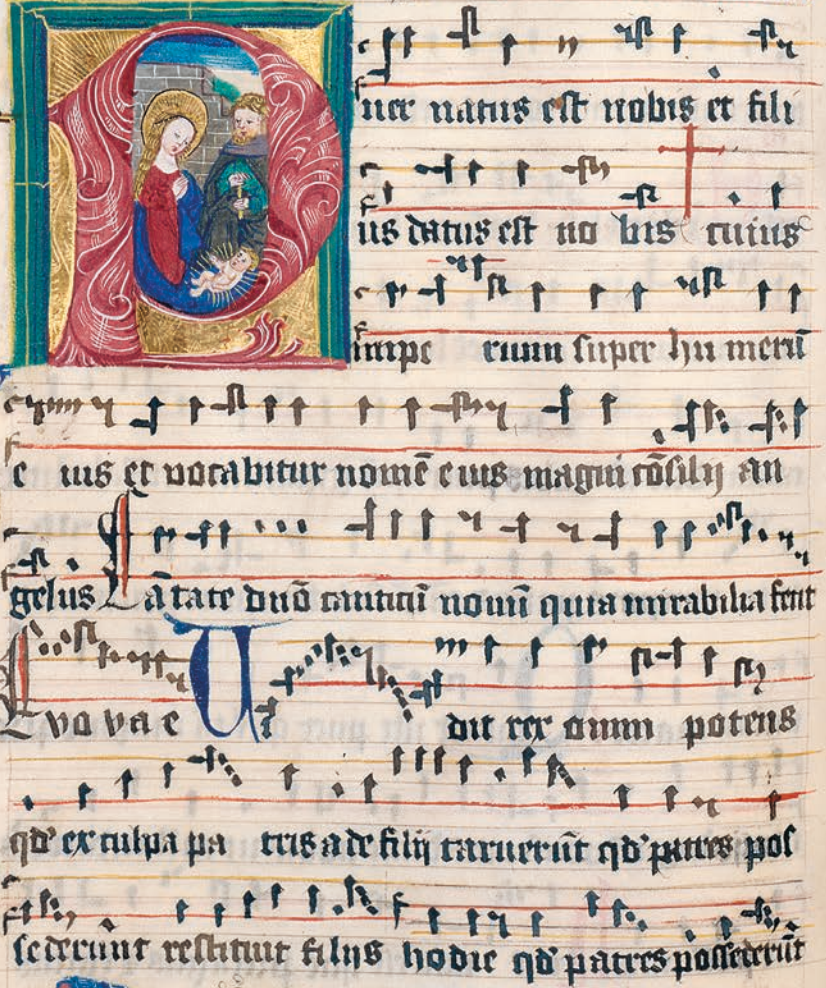 Puer natus est nobis et fili
us datus est no bis cuius
impe rium super hu merū
e ius et vocabitur nomē eius magni cōsilij an
gelus Cātate dn̄o canticū novū quia mirabilia fecit
Evovae Au dit rex omni potens
qd' ex culpa pa tris ade filij caruerūt qd' patres pos
sederunt restituit filijs hodie qd' patres possederūt